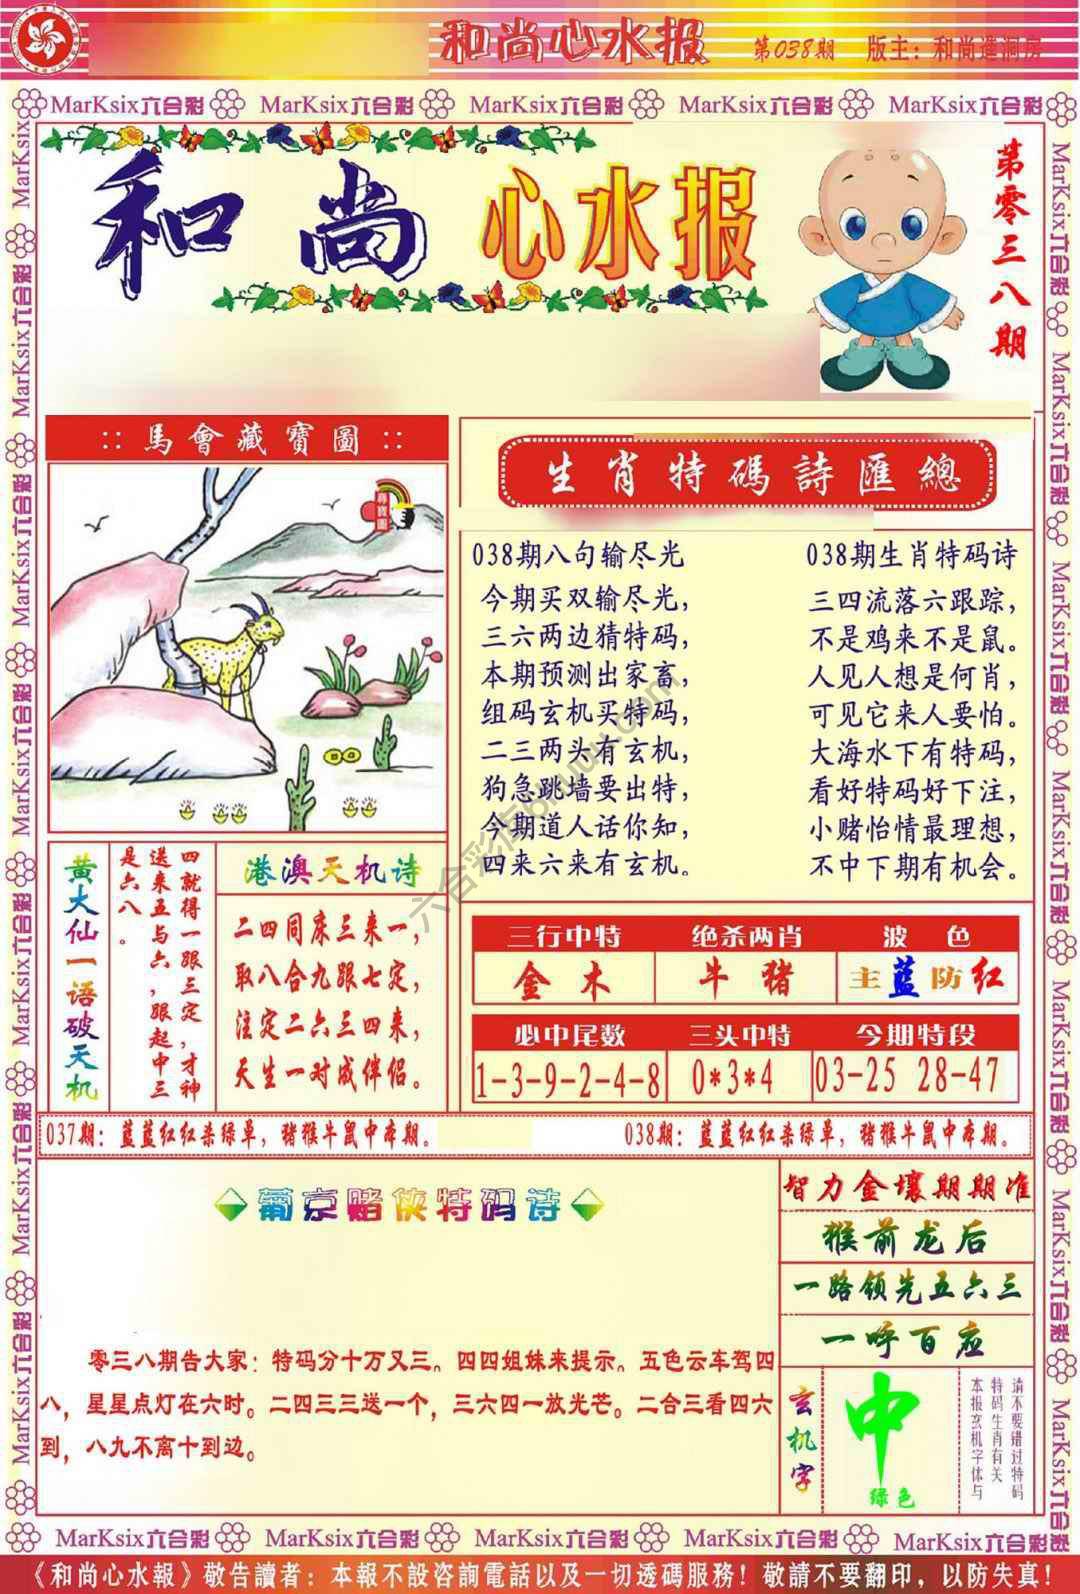 和尚心水报 第038期 版主：和尚進洞房
MarKsix六合彩 MarKsix六合彩 MarKsix六合彩 MarKsix六合彩 MarKsix六合彩
和尚 心水报
第零三八期
:: 馬會藏寶圖 ::
尋寶圖
生肖特碼詩匯總
038期八句输尽光
今期买双输尽光，
三六两边猜特码，
本期预测出家畜，
组码玄机买特码，
二三两头有玄机，
狗急跳墙要出特，
今期道人话你知，
四来六来有玄机。
038期生肖特码诗
三四流落六跟踪，
不是鸡来不是鼠。
人见人想是何肖，
可见它来人要怕。
大海水下有特码，
看好特码好下注，
小赌怡情最理想，
不中下期有机会。
黄大仙一语破天机
四就得一跟三定，才神
送来五与六，跟起中三
是六八。
港澳天机诗
二四同床三来一，
取八合九跟七定，
注定二六三四来，
天生一对成伴侣。
三行中特 绝杀两肖 波 色
金木 牛猪 主蓝防红
必中尾数 三头中特 今期特段
1-3-9-2-4-8 0*3*4 03-25 28-47
037期：蓝蓝红红杀绿单，猪猴牛鼠中本期。
038期：蓝蓝红红杀绿单，猪猴牛鼠中本期。
葡京赌侠特码诗
零三八期告大家：特码分十万又三。四四姐妹来提示。五色云车驾四
八，星星点灯在六时。二四三三送一个，三六四一放光芒。二合三看四六
到，八九不离十到边。
智力金壤期期准
猴前龙后
一路领先五六三
一呼百应
玄机字
中
绿色
请不要错过特码
特码生肖有关
本报玄机字体与
MarKsix六合彩 MarKsix六合彩 MarKsix六合彩 MarKsix六合彩 MarKsix六合彩
《和尚心水報》敬告讀者：本報不設咨詢電話以及一切透碼服務！敬請不要翻印，以防失真！